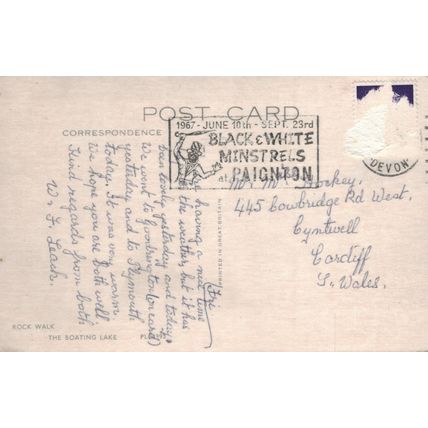 POST CARD
CORRESPONDENCE
1967 - JUNE 10th - SEPT. 23rd
BLACK & WHITE
MINSTRELS
at PAIGNTON
DEVON
Fri
having a nice time
the weather but it has
been lovely yesterday and today.
We went to Goodrington (on card)
yesterday and to Plymouth
today. It was very warm.
We hope you are both well
Kind regards from both
W & F. Leach.
PRINTED IN GREAT BRITAIN
Hockey,
445 Cowbridge Rd West,
Cyntwell
Cardiff
S. Wales.
ROCK WALK
THE BOATING LAKE